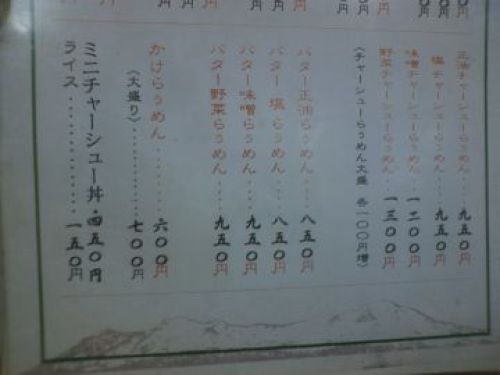 正油チャーシューらぅめん‥九五〇円
塩チャーシューらぅめん‥九五〇円
味噌チャーシューらぅめん‥一二〇〇円
野菜チャーシューらぅめん‥一三〇〇円
(チャーシューらぅめん大盛 各一〇〇円増)
バター正油らぅめん‥‥八五〇円
バター塩らぅめん‥‥八五〇円
バター味噌らぅめん‥‥九五〇円
バター野菜らぅめん‥‥九五〇円
かけらぅめん‥‥‥‥六〇〇円
(大盛り)‥‥‥‥七〇〇円
ミニチャーシュー丼・四五〇円
ライス‥‥‥‥‥‥一五〇円